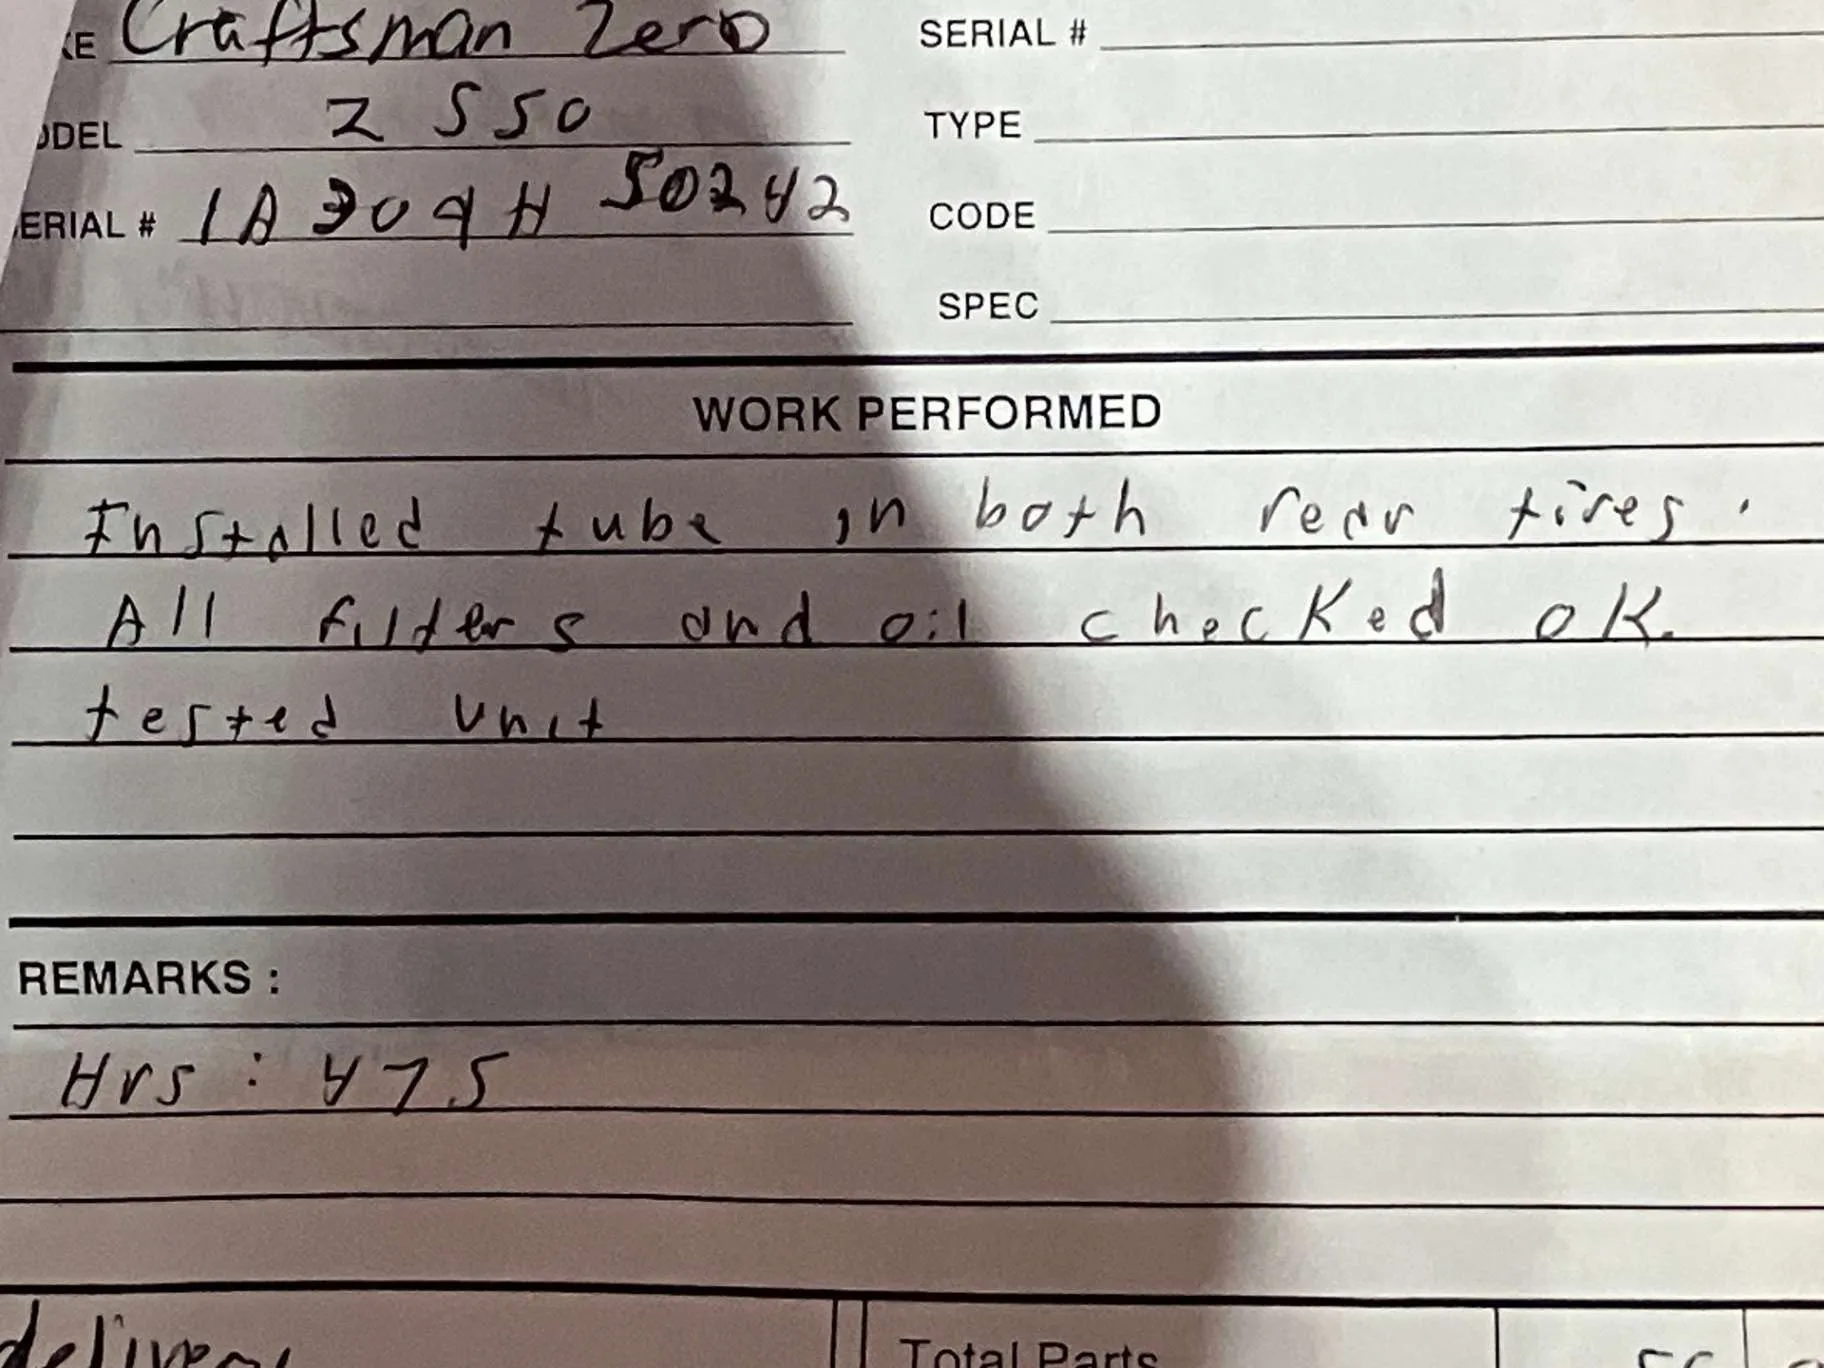 KE Craftsman Zero SERIAL #
ODEL Z 550 TYPE
ERIAL # 1A304H 50242 CODE
SPEC
WORK PERFORMED
Installed tube in both rear tires.
All filters and oil checked OK.
tested unit
REMARKS :
Hrs : 475
delivery Total Parts